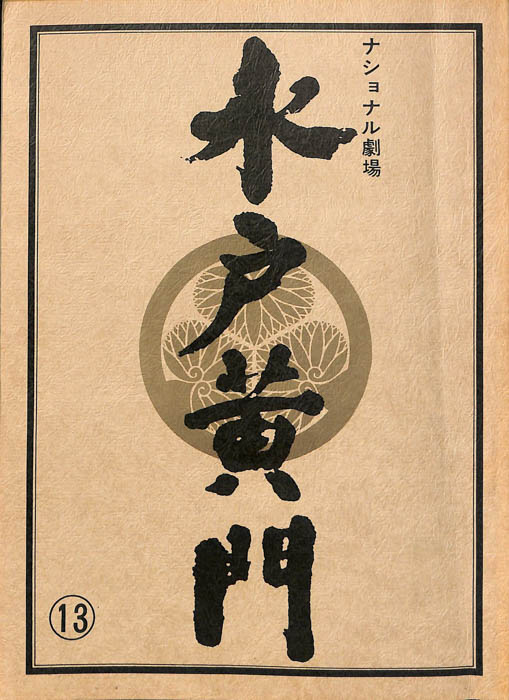 ナショナル劇場
水戸黄門
⑬